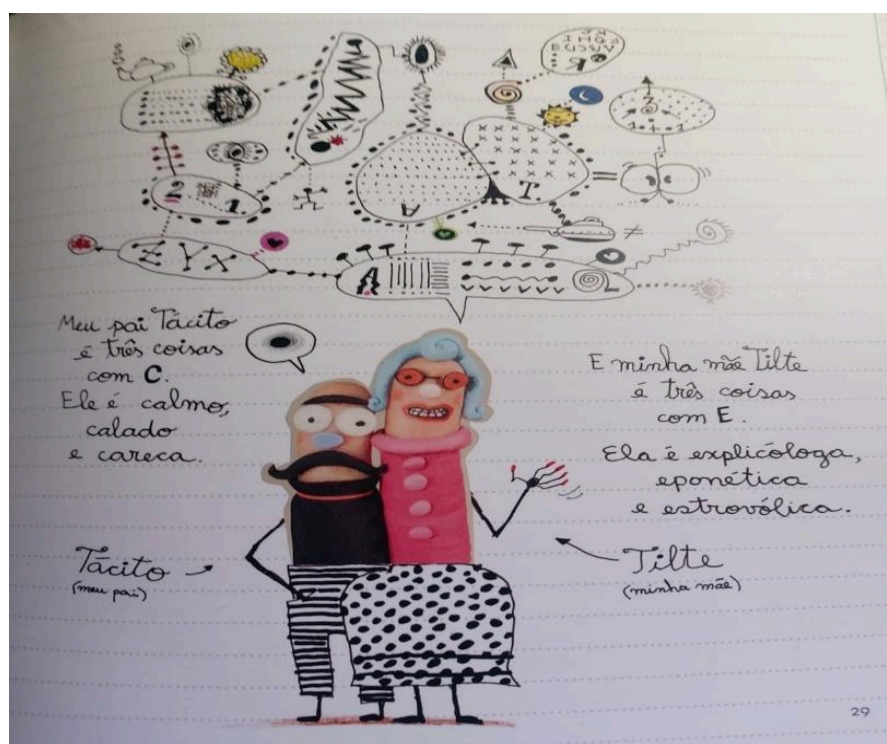 Z Y X
Meu pai Tácito
é três coisas
com C.
Ele é calmo,
calado
e careca.
E minha mãe Tilte
é três coisas
com E.
Ela é explicóloga,
eponética
e estrovólica.
Tácito
(meu pai)
Tilte
(minha mãe)
29